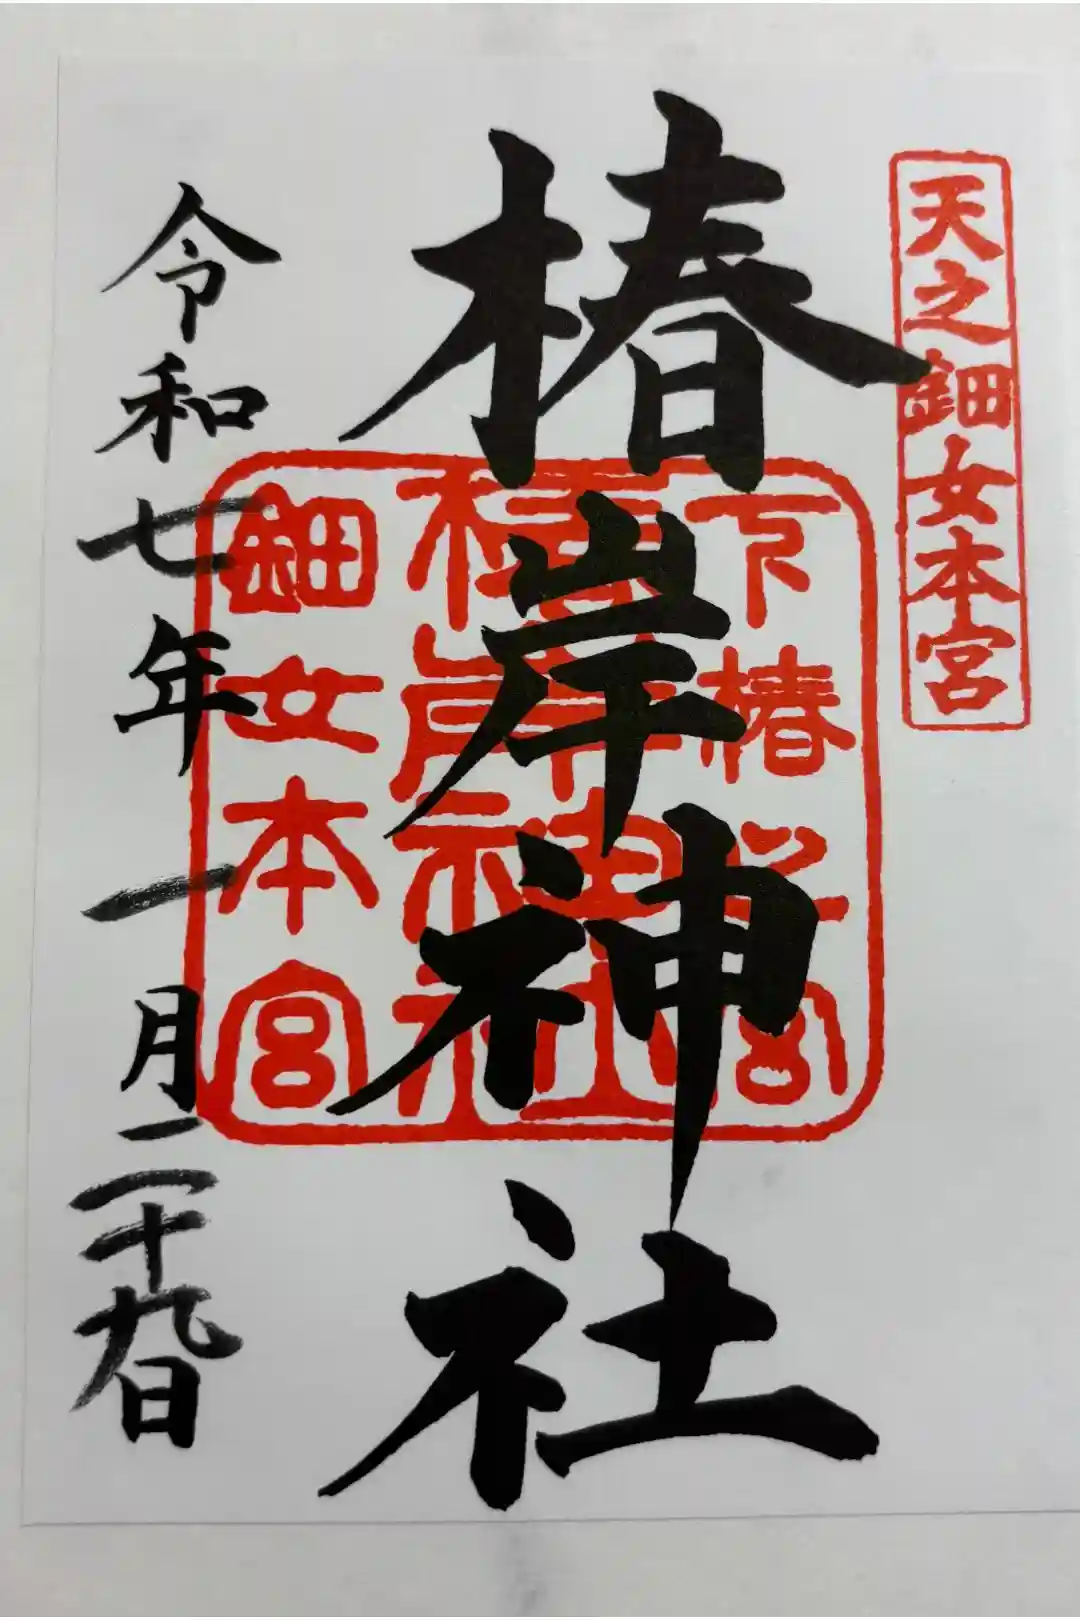 天之鈿女本宮
椿岸神社
下椿之宮
椿岸神社
鈿女本宮
令和七年一月二十九日